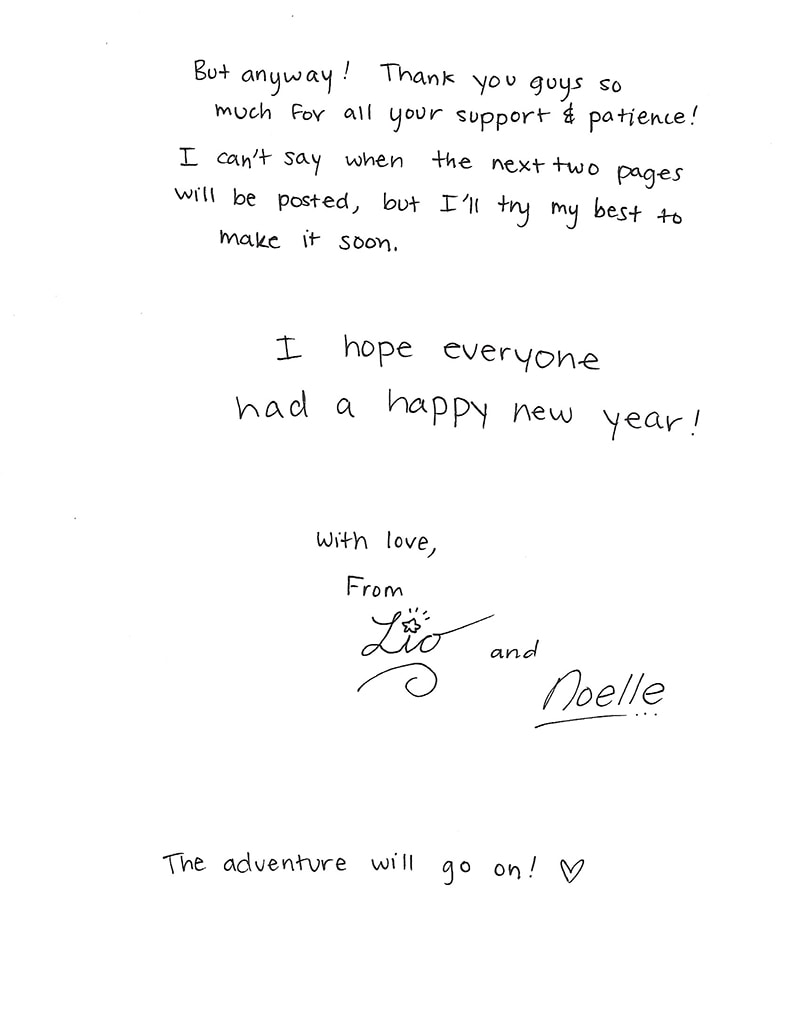 But anyway! Thank you guys so
much for all your support & patience!
I can't say when the next two pages
will be posted, but I'll try my best to
make it soon.
I hope everyone
had a happy new year!
With love,
From
Lio
and
Noelle
The adventure will go on! ♡